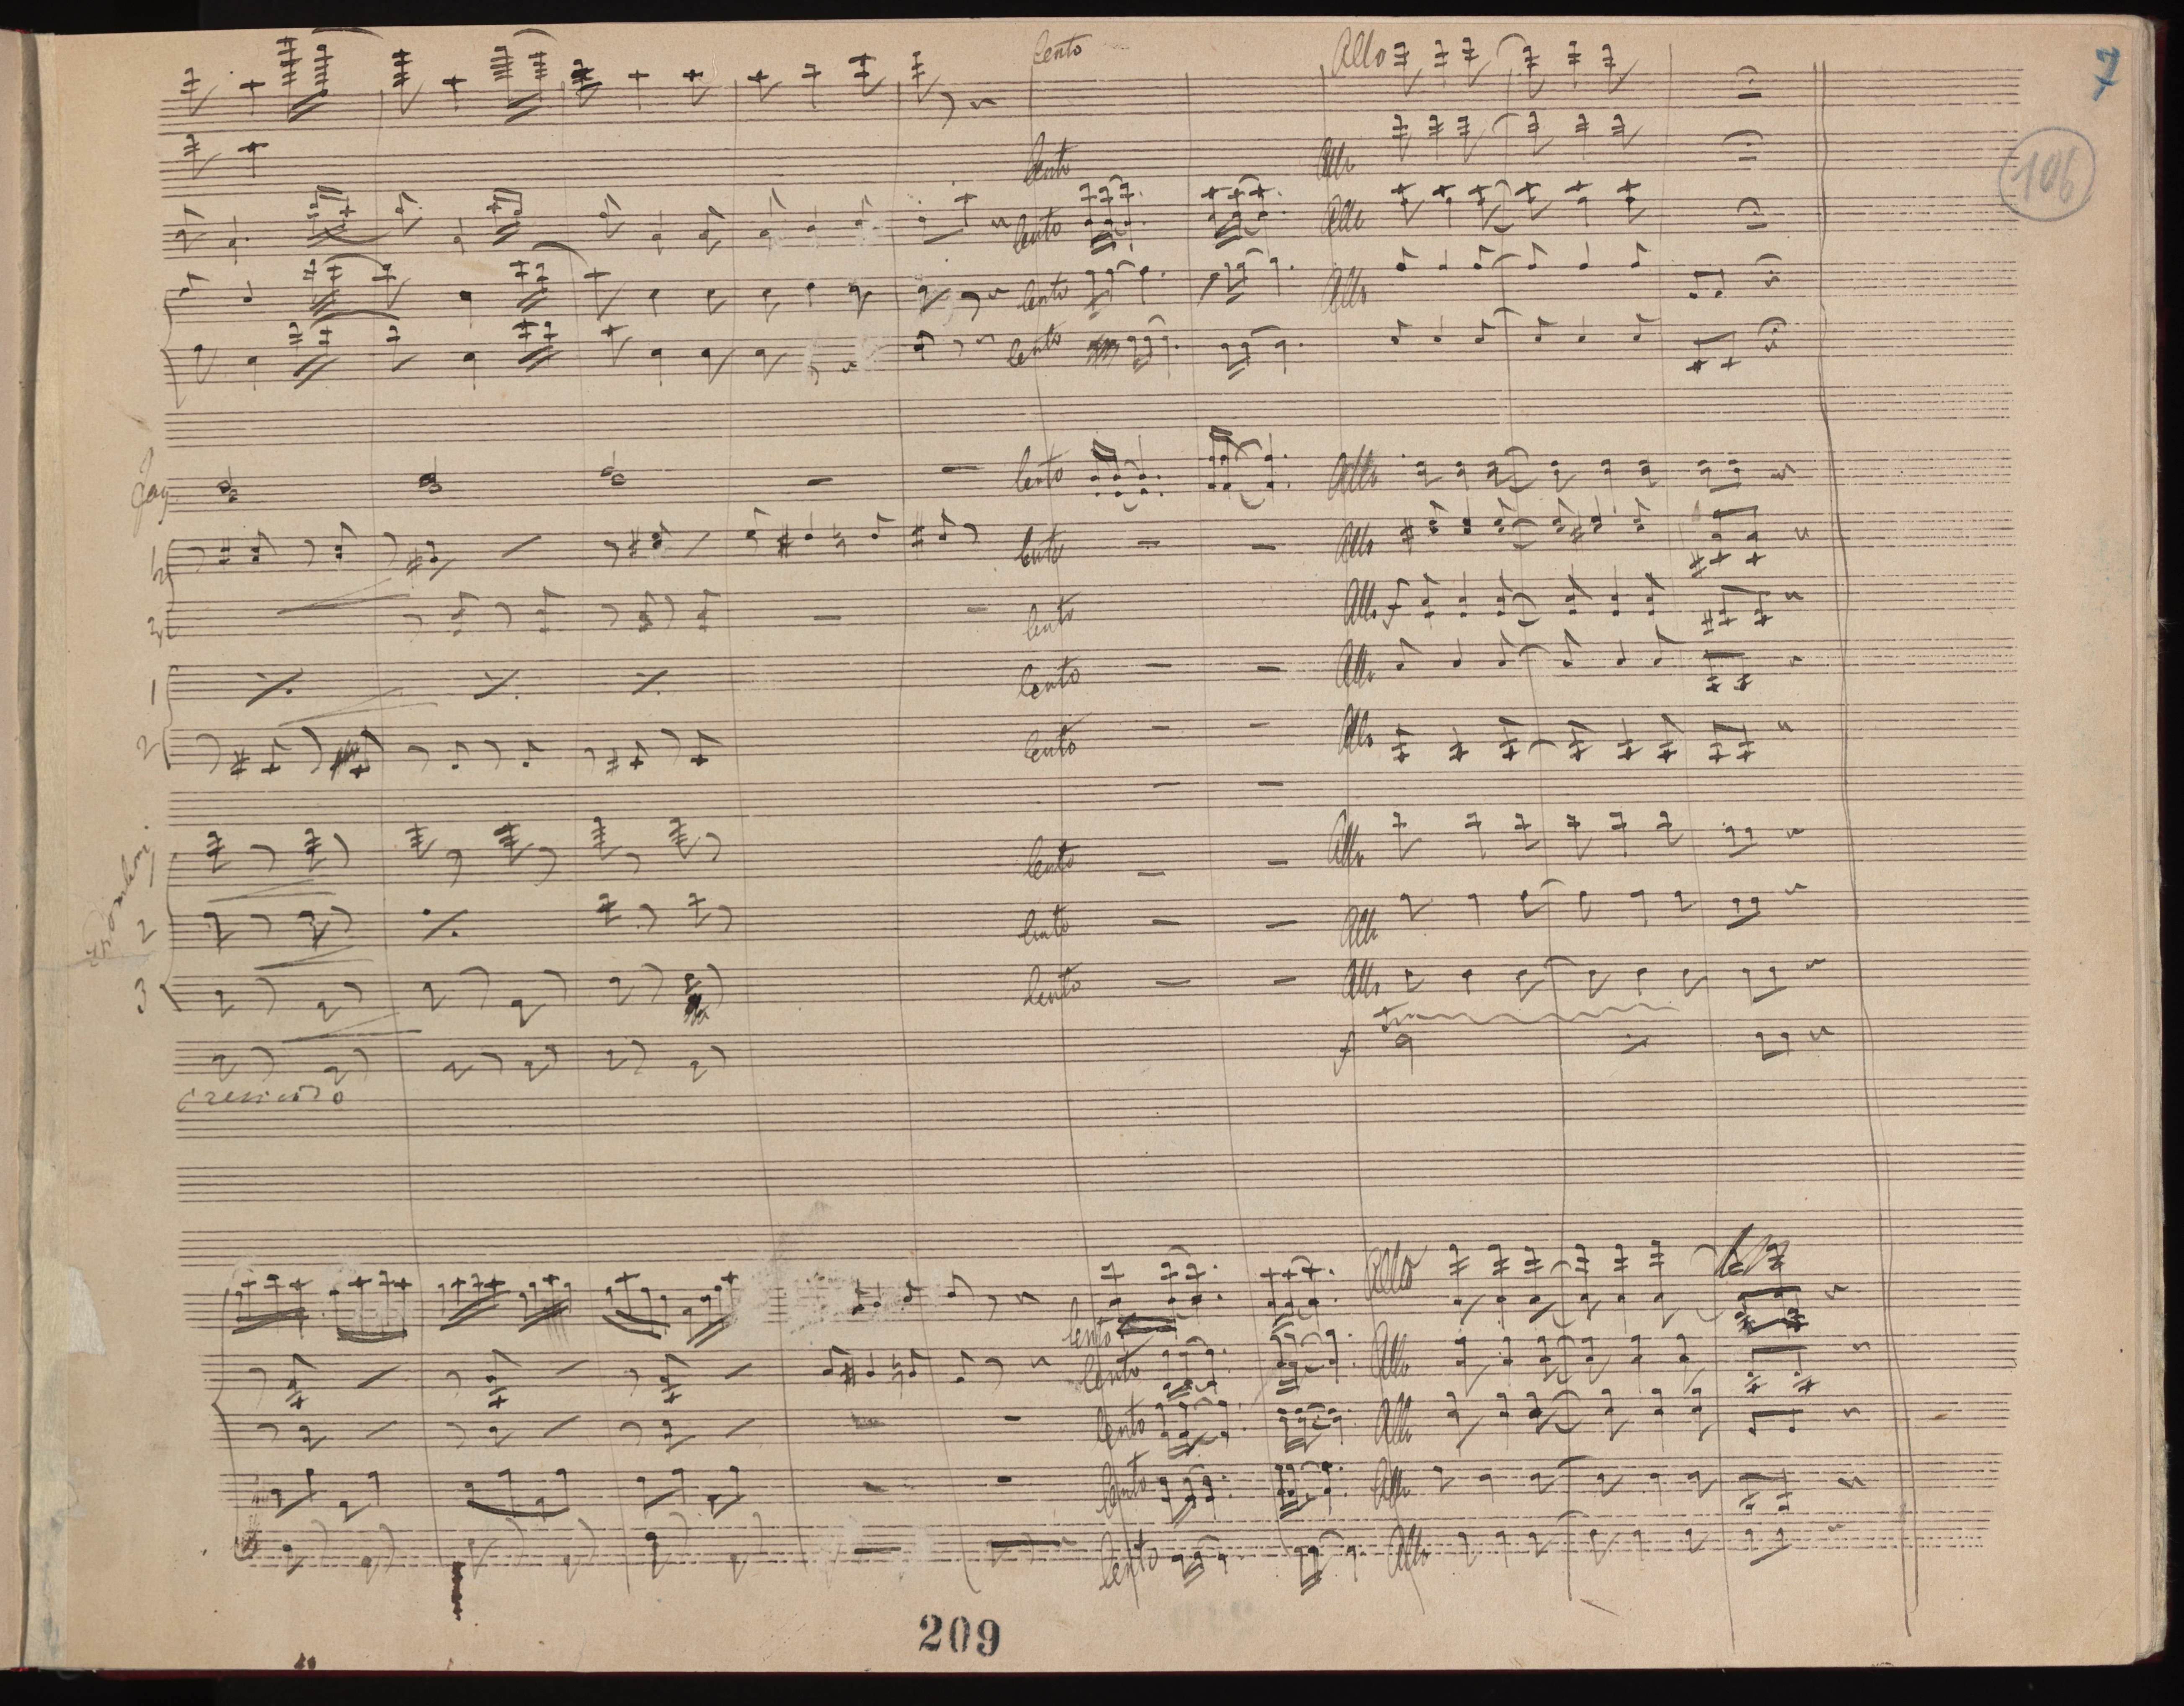 lento Allo 7
106
lento Allo
lento Allo
lento Allo
lento
Fag lento Allo
1 lento Allo
3 lento Allo f
1 lento Allo
2 lento Allo
tromboni
1 lento Allo
2 lento Allo
3 lento Allo
tr
f
crescendo
Allo
lento
lento Allo
lento Allo
lento Allo
lento Allo
209